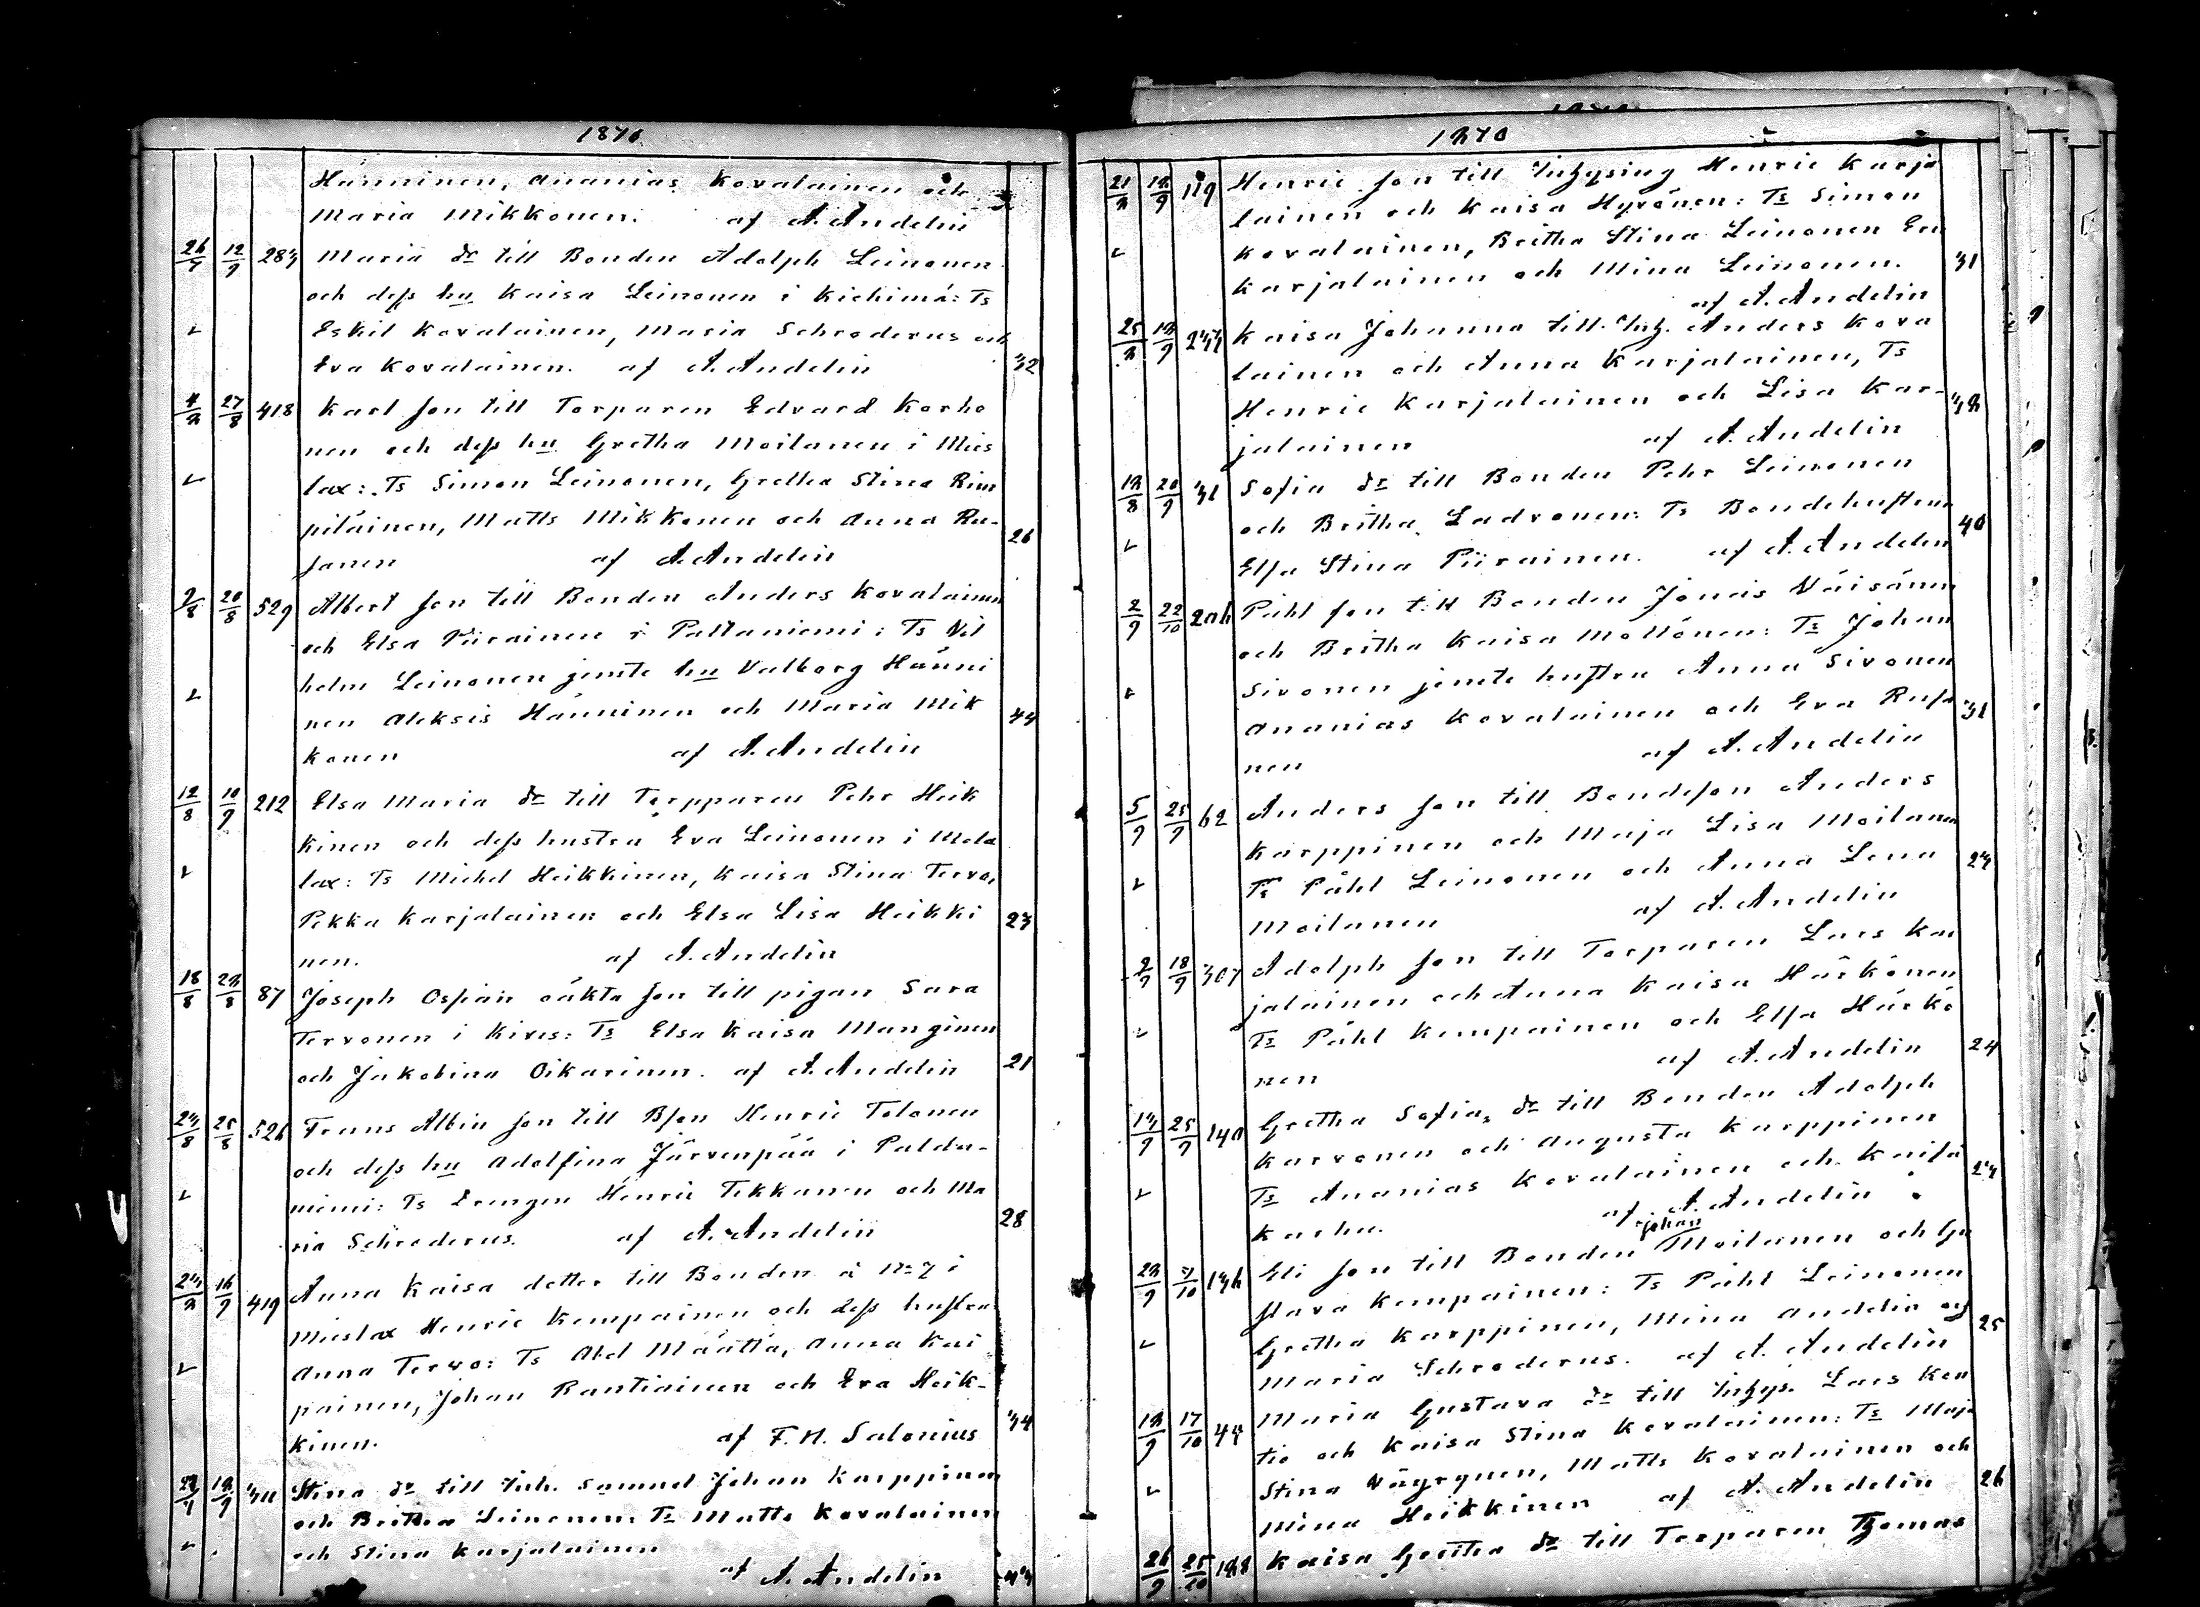 1870.
Hänninen, Ananias Kovalainen och
Maria Mikkonen. af A. Andelin
26/7 12/9 Maria dr till Bonden Adolph Leinonen
och dess hu Kaisa Leinonen i Kiehimä: Ts
Eskil Kovalainen, Maria Schroderus och
Eva Kovalainen. af A. Andelin 32
27/8 418 Karl son till Torparen Edvard Korho
nen och dess hu Gretha Moilanen i Mies
lax: Ts Simon Leinonen, Gretha Stina Rim
piläinen, Matts Mikkonen och Anna Ru-
sanen af A. Andelin 26
9/8 20/8 529 Albert son till Bonden Anders Kovalainen
och Elsa Piirainen i Paltaniemi: Ts Vil
helm Leinonen jemte hu Valborg Hänni
nen Aleksis Hänninen och Maria Mik
konen af A. Andelin 44
12/8 10/9 212 Elsa Maria dr till Torpparen Pehr Heik
kinen och dess hustru Eva Leinonen i Mela
lax: Ts Michel Heikkinen, Kaisa Stina Tervo,
Pekka Karjalainen och Elsa Lisa Heikki
nen. af A. Andelin 23
18/8 28/8 87 Joseph Ospian oäkta son till pigan Sara
Tervonen i Kives: Ts Elsa Kaisa Manginen
och Jakobina Oikarinen. af A. Andelin 21
23/8 25/8 526 Frans Albin son till Bson Henric Tolonen
och dess hu Adolfina Järvenpää i Palda-
niemi: Ts Drengen Henric Tikkanen och Ma
ria Schroderus. af A. Andelin 28
16/9 419 Anna Kaisa dotter till Bonden å No 7 i
Mieslax Henric Kempainen och dess hustru
Anna Tervo: Ts Abel Määttä, Anna Kai
painen, Johan Rantiainen och Eva Heik-
kinen. af F. H. Salonius 34
18/9 Stina dr till Inh. Samuel Johan Karppinen
och Britha Leinonen: Ts Matts Kovalainen
och Stina Karjalainen
af A. Andelin
1870
21/8 18/9 119 Henric son till Inhysing Henric Karja
lainen och Kaisa Hyvönen: Ts Simon
Kovalainen, Britha Stina Leinonen Eva
Karjalainen och Mina Leinonen. 31
af A. Andelin
25/8 18/9 Kaisa Johanna till Inh. Anders Kova
lainen och Anna Karjalainen, Ts
Henric Karjalainen och Lisa Kar- 38
jalainen af A. Andelin
18/8 20/9 31 Sofia dr till Bonden Pehr Leinonen
och Britha Ladvonen: Ts Bondehustrun 40
Elsa Stina Piirainen. af A. Andelin
2/9 22/10 206 Påhl son till Bonden Jonas Väisänen
och Britha Kaisa Mollönen: Ts Johan
Sivonen jemte hustru Anna Sivonen
Ananias Kovalainen och Eva Rusa 31
nen af A. Andelin
5/9 25/9 62 Anders son till Bondeson Anders
Karppinen och Maja Lisa Moilanen
Ts Påhl Leinonen och Anna Lena 23
Moilanen af A. Andelin
9/9 18/9 307 Adolph son till Torparen Lars Kar
jalainen och Anna Kaisa Härkönen
Ts Påhl Kempainen och Elsa Härkö
nen af A. Andelin 24
13/9 25/9 140 Gretha Sofia, dr till Bonden Adolph
Karvonen och Augusta Karppinen
Ts Ananias Kovalainen och Kaisa 23
Karhu. af A. Andelin
Johan
28/9 9/10 136 Eli son till Bonden Moilanen och Gu
stava Kempainen: Ts Påhl Leinonen
Gretha Karppinen, Mina Andelin och 25
Maria Schroderus. af A. Andelin
18/9 17/10 Maria Gustava dr till Inhys. Lars Kem
tio och Kaisa Stina Kovalainen: Ts Maja
Stina Väyrynen, Matts Kovalainen och
Mina Heikkinen af A. Andelin 26
26/9 25/10 188 Kaisa Gretha dr till Torparen Thomas